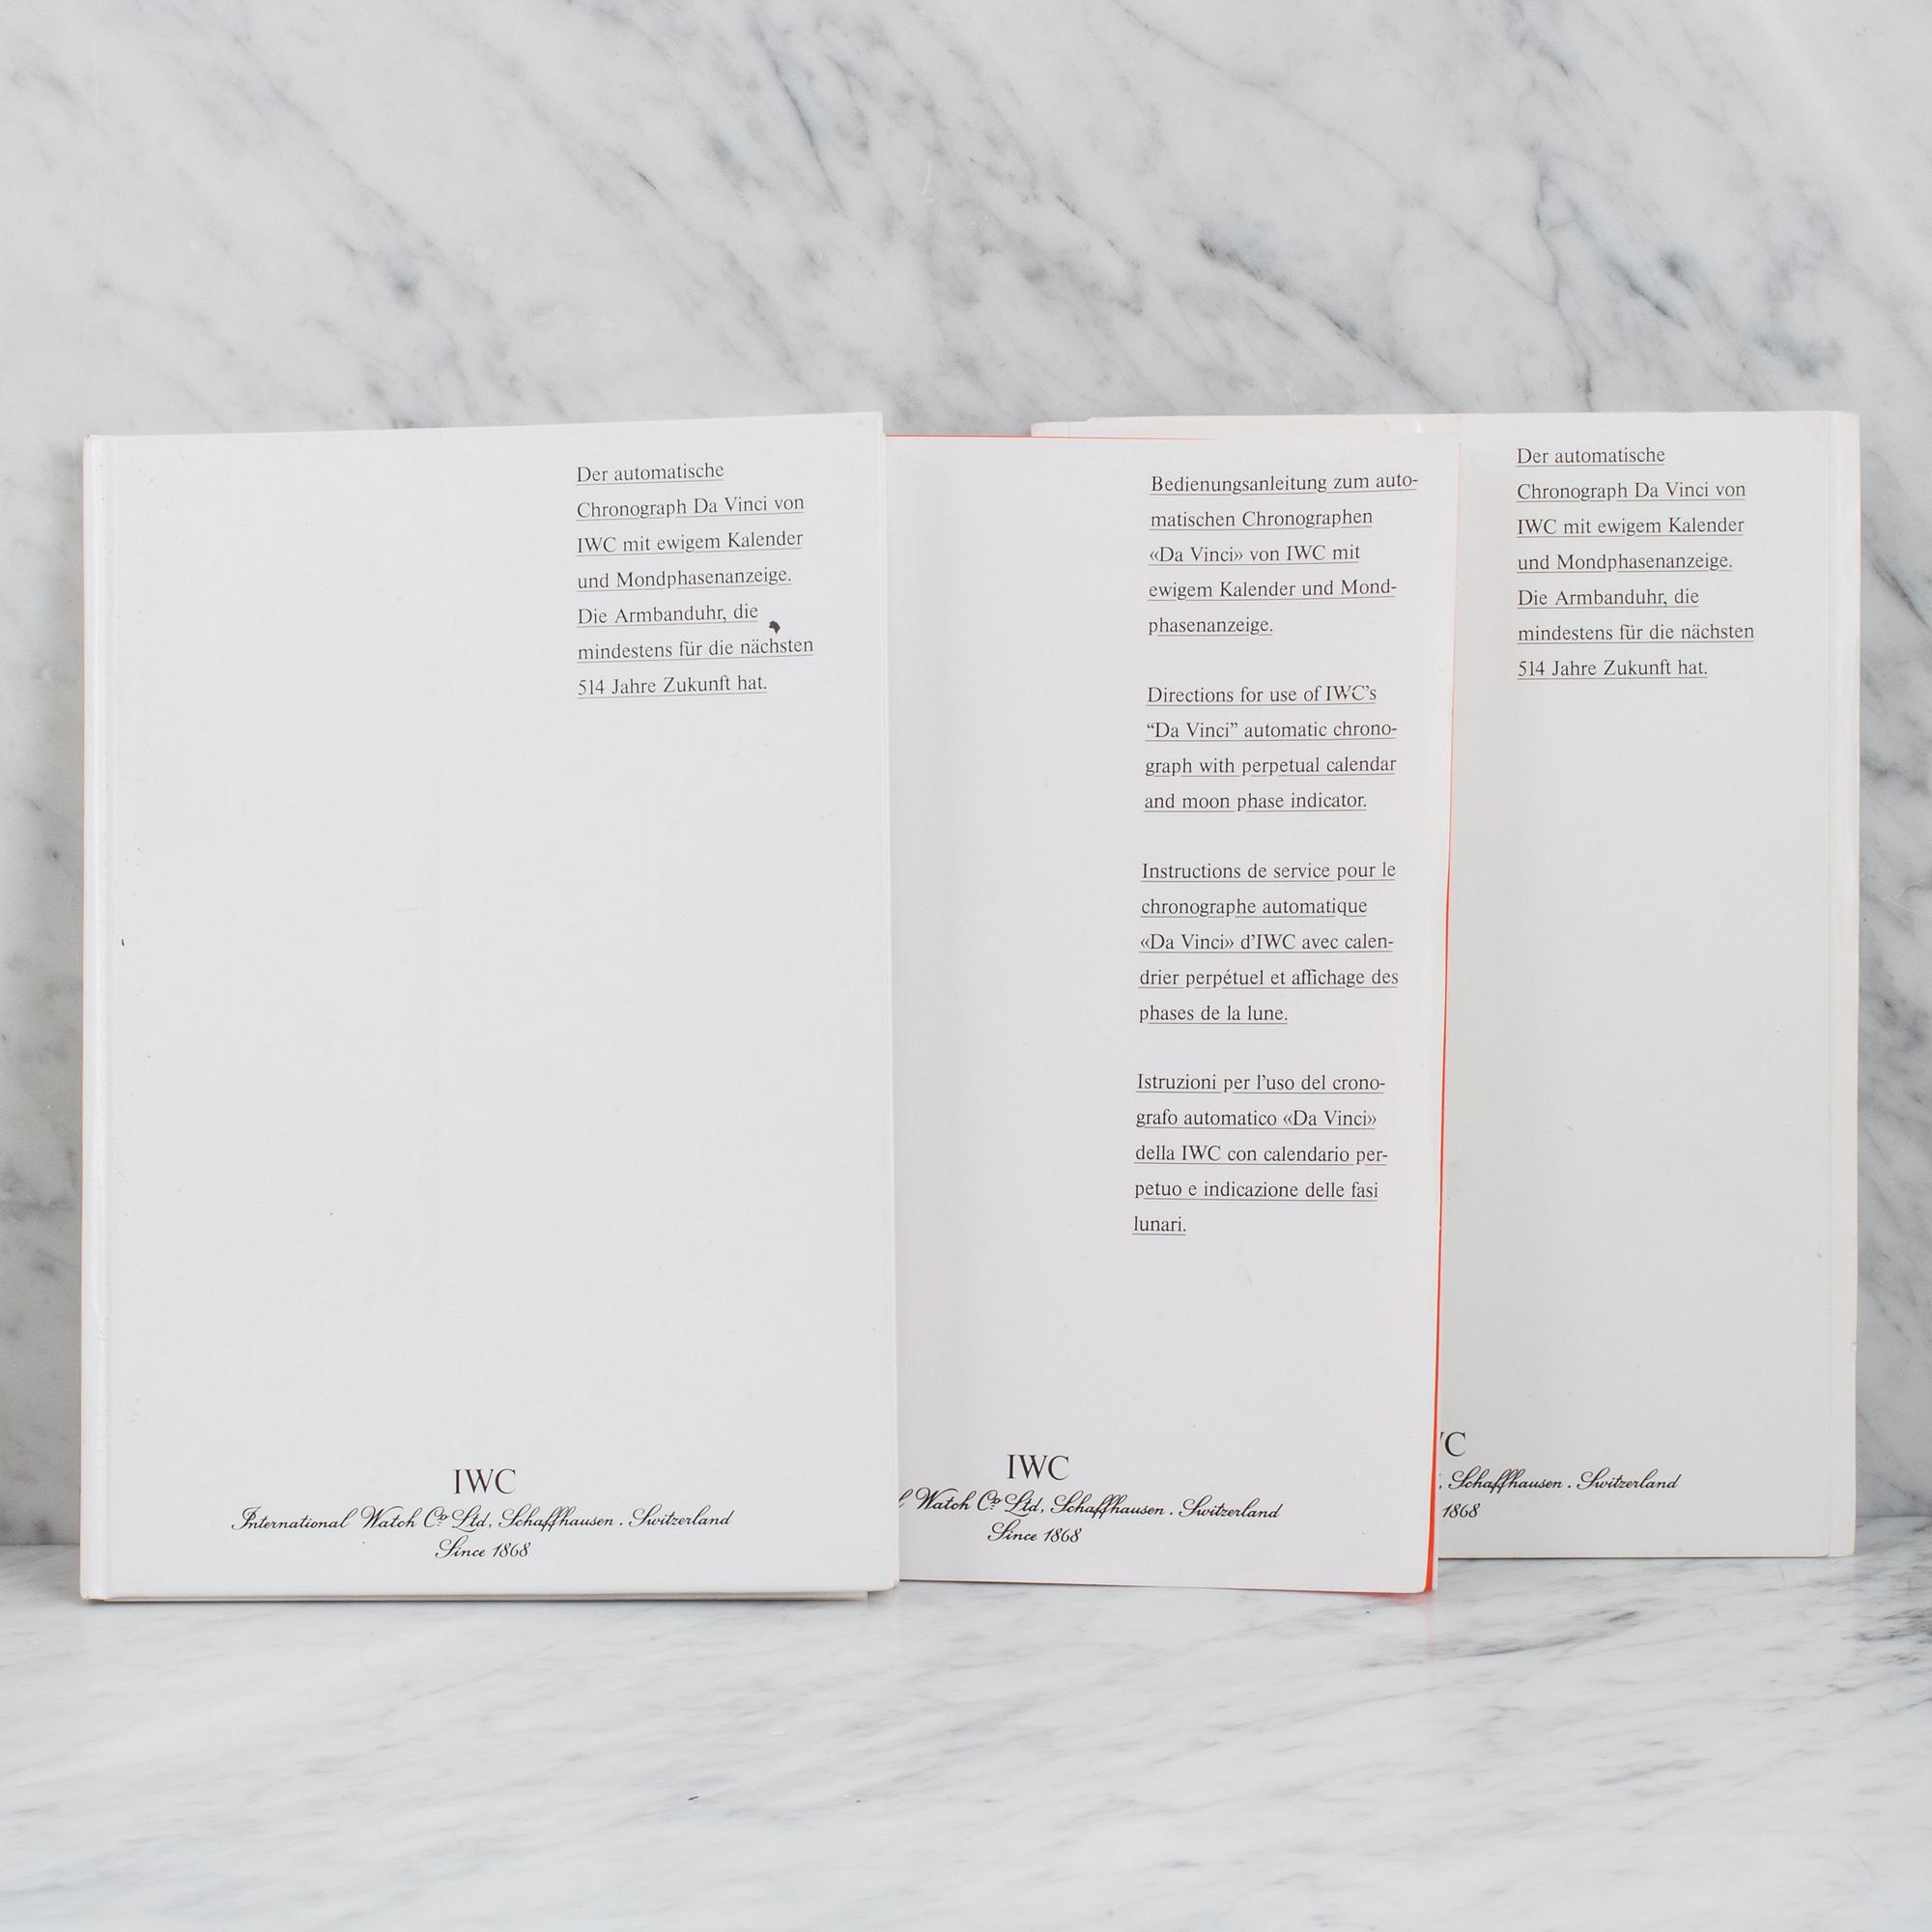 Der automatische
Chronograph Da Vinci von
IWC mit ewigem Kalender
und Mondphasenanzeige.
Die Armbanduhr, die
mindestens für die nächsten
514 Jahre Zukunft hat.
IWC
International Watch Co Ltd, Schaffhausen . Switzerland
Since 1868
Bedienungsanleitung zum auto-
matischen Chronographen
«Da Vinci» von IWC mit
ewigem Kalender und Mond-
phasenanzeige.
Directions for use of IWC's
“Da Vinci” automatic chrono-
graph with perpetual calendar
and moon phase indicator.
Instructions de service pour le
chronographe automatique
«Da Vinci» d'IWC avec calen-
drier perpétuel et affichage des
phases de la lune.
Istruzioni per l'uso del crono-
grafo automatico «Da Vinci»
della IWC con calendario per-
petuo e indicazione delle fasi
lunari.
IWC
Watch Co Ltd, Schaffhausen . Switzerland
Since 1868
Der automatische
Chronograph Da Vinci von
IWC mit ewigem Kalender
und Mondphasenanzeige.
Die Armbanduhr, die
mindestens für die nächsten
514 Jahre Zukunft hat.
Schaffhausen . Switzerland
1868